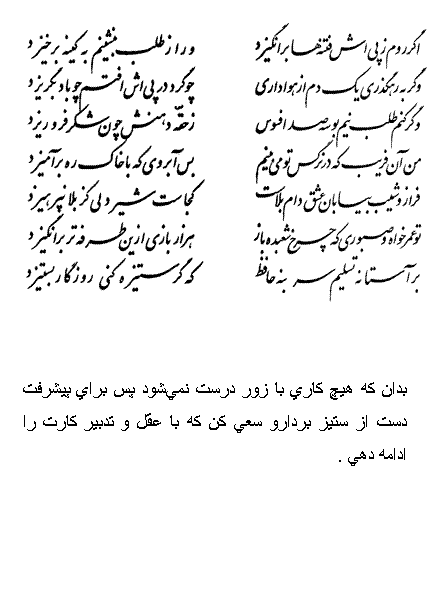 اگر روم ز پی اش فتنه ها برانگیزد ور از طلب بنشینم به کینه برخیزد
وگر به رهگذری یک دم از هواداری چو گرد در پی اش افتم چو باد بگریزد
وگر کنم طلب نیم بوسه صد افسوس ز حقه دهنش چون شکر فرو ریزد
من آن فریب که در نرگس تو می بینم بس آبروی که با خاک ره برآمیزد
فراز و شیب بیابان عشق دام بلاست کجاست شیر دلی کز بلا نپرهیزد
تو عمر خواه و صبوری که چرخ شعبده باز هزار بازی ازین طرفه تر برانگیزد
بر آستانه تسلیم سر بنه حافظ که گر ستیزه کنی روزگار بستیزد
بدان که هیچ کاري با زور درست نمي‌شود پس براي پیشرفت
دست از ستیز بردارو سعي کن که با عقل و تدبیر کارت را
ادامه دهي .